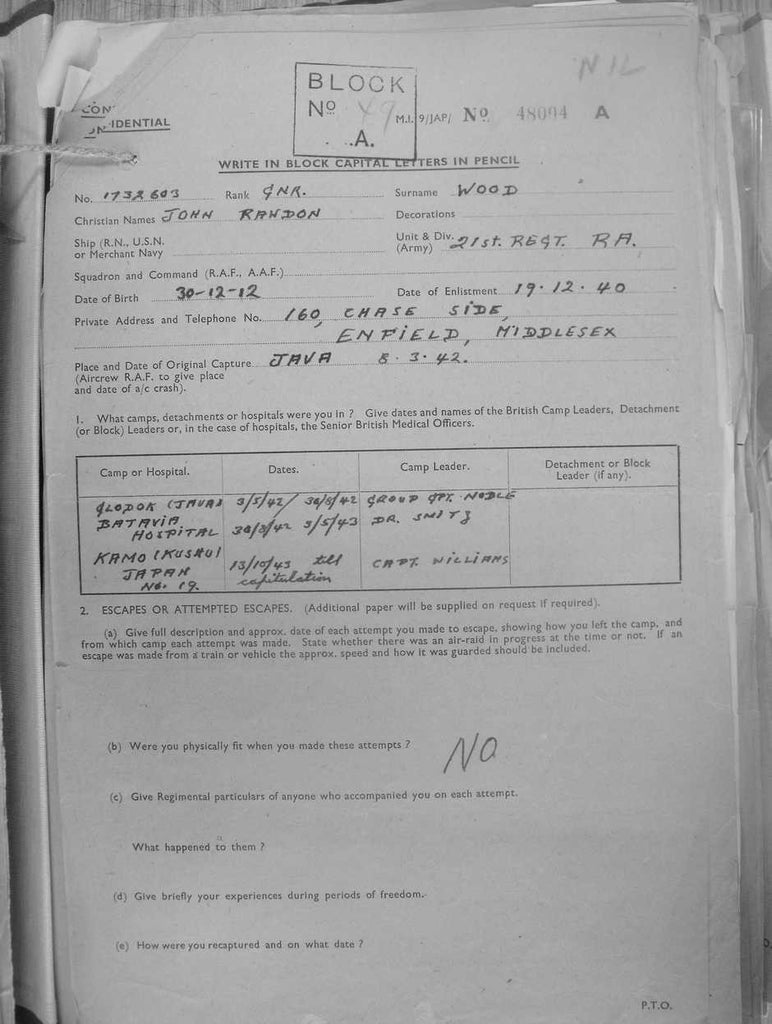 NIL
CON-
IDENTIAL
BLOCK
No 49
A.
M.I. 9/JAP/ No 48094 A
WRITE IN BLOCK CAPITAL LETTERS IN PENCIL
No. 1732603 Rank GNR. Surname WOOD
Christian Names JOHN RANDON Decorations
Ship (R.N., U.S.N.
or Merchant Navy
Unit & Div.
(Army) 21st. REGT. R.A.
Squadron and Command (R.A.F., A.A.F.)
Date of Birth 30-12-12 Date of Enlistment 19.12.40
Private Address and Telephone No. 160, CHASE SIDE,
ENFIELD, MIDDLESEX
Place and Date of Original Capture JAVA 8.3.42.
(Aircrew R.A.F. to give place
and date of a/c crash).
1. What camps, detachments or hospitals were you in ? Give dates and names of the British Camp Leaders, Detachment
(or Block) Leaders or, in the case of hospitals, the Senior British Medical Officers.
Camp or Hospital. Dates. Camp Leader. Detachment or Block
Leader (if any).
GLODOK (JAVA) 3/5/42 / 30/8/42 GROUP CPT. NOBLE
BATAVIA
HOSPITAL 30/8/42 3/5/43 DR. SMITZ
KAMO (KUSHU)
JAPAN
No. 19.
13/10/43 till
capitulation
CAPT. WILLIAMS
2. ESCAPES OR ATTEMPTED ESCAPES. (Additional paper will be supplied on request if required).
(a) Give full description and approx. date of each attempt you made to escape, showing how you left the camp, and
from which camp each attempt was made. State whether there was an air-raid in progress at the time or not. If an
escape was made from a train or vehicle the approx. speed and how it was guarded should be included.
(b) Were you physically fit when you made these attempts ? NO
(c) Give Regimental particulars of anyone who accompanied you on each attempt.
What happened to them ?
(d) Give briefly your experiences during periods of freedom.
(e) How were you recaptured and on what date ?
P.T.O.